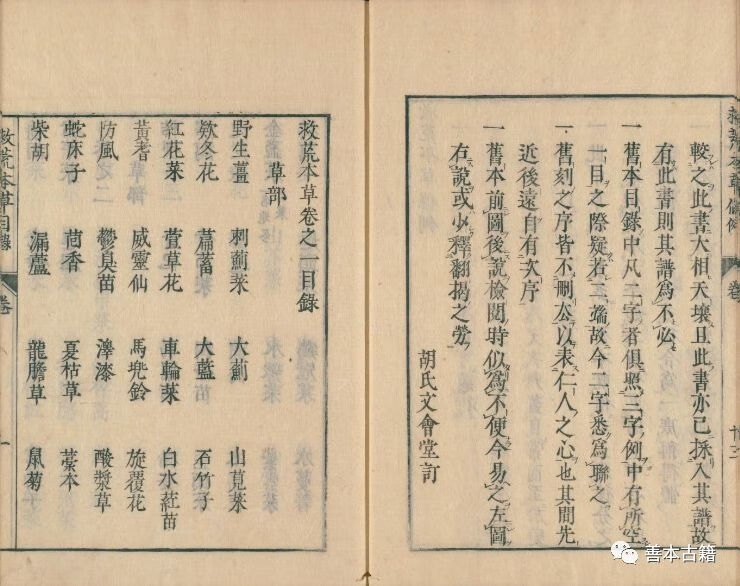 較之此書大相天壤且此書亦已採入其譜故
有此書則其譜爲不必
一舊本目錄中凡二字者俱照三字例中有所空
一目之際疑若二端故今二字悉爲聯之
一舊刻之序皆不刪去以表仁人之心也其間先
近後遠自有次序
一舊本前圖後說檢閱時似爲不便今易之左圖
右說或少釋翻揭之勞
胡氏文會堂訂
救荒本草卷之一目錄
草部
野生薑 刺薊菜 大薊 山莧菜
欵冬花 萹蓄 大藍 石竹子
紅花菜 萱草花 車輪菜 白水葒苗
黃耆 威靈仙 馬兜鈴 旋覆花
防風 鬱臭苗 澤漆 酸漿草
蛇床子 茴香 夏枯草 藁本
柴胡 漏蘆 龍膽草 鼠菊
救荒本草目錄 卷一
善本古籍